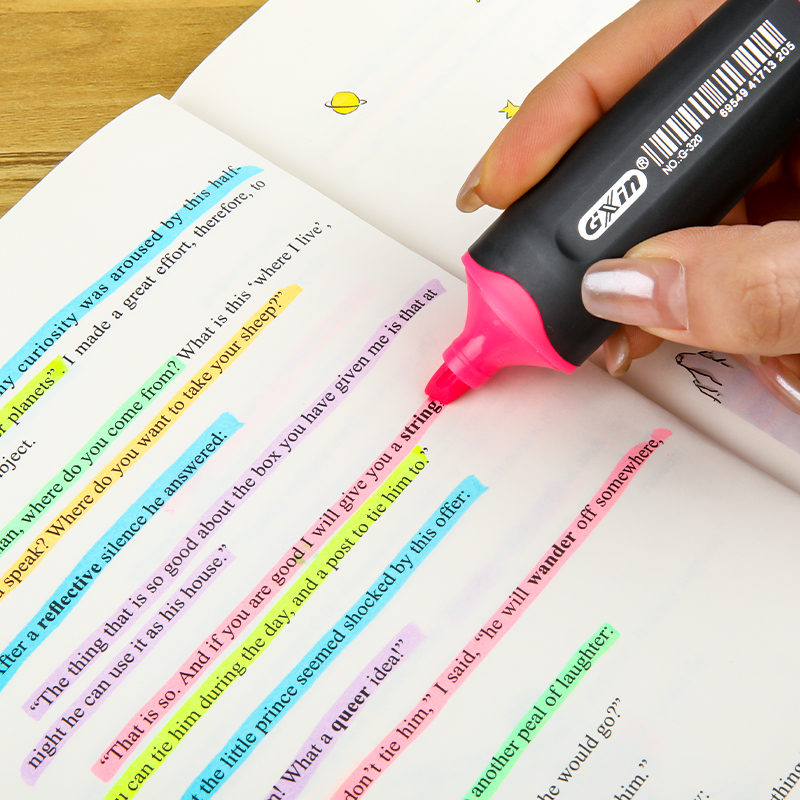 my curiosity was aroused by this half-
planets” I made a great effort, therefore, to
object.
man, where do you come from? What is this ‘where I live’,
speak? Where do you want to take your sheep?”
After a reflective silence he answered:
“The thing that is so good about the box you have given me is that at
night he can use it as his house.”
“That is so. And if you are good I will give you a string
can tie him during the day, and a post to tie him to.”
the little prince seemed shocked by this offer:
What a queer idea!”
don’t tie him,” I said, “he will wander off somewhere,
another peal of laughter:
he would go?”
him.”
GXin®
NO.:G-320
69549 41713 205